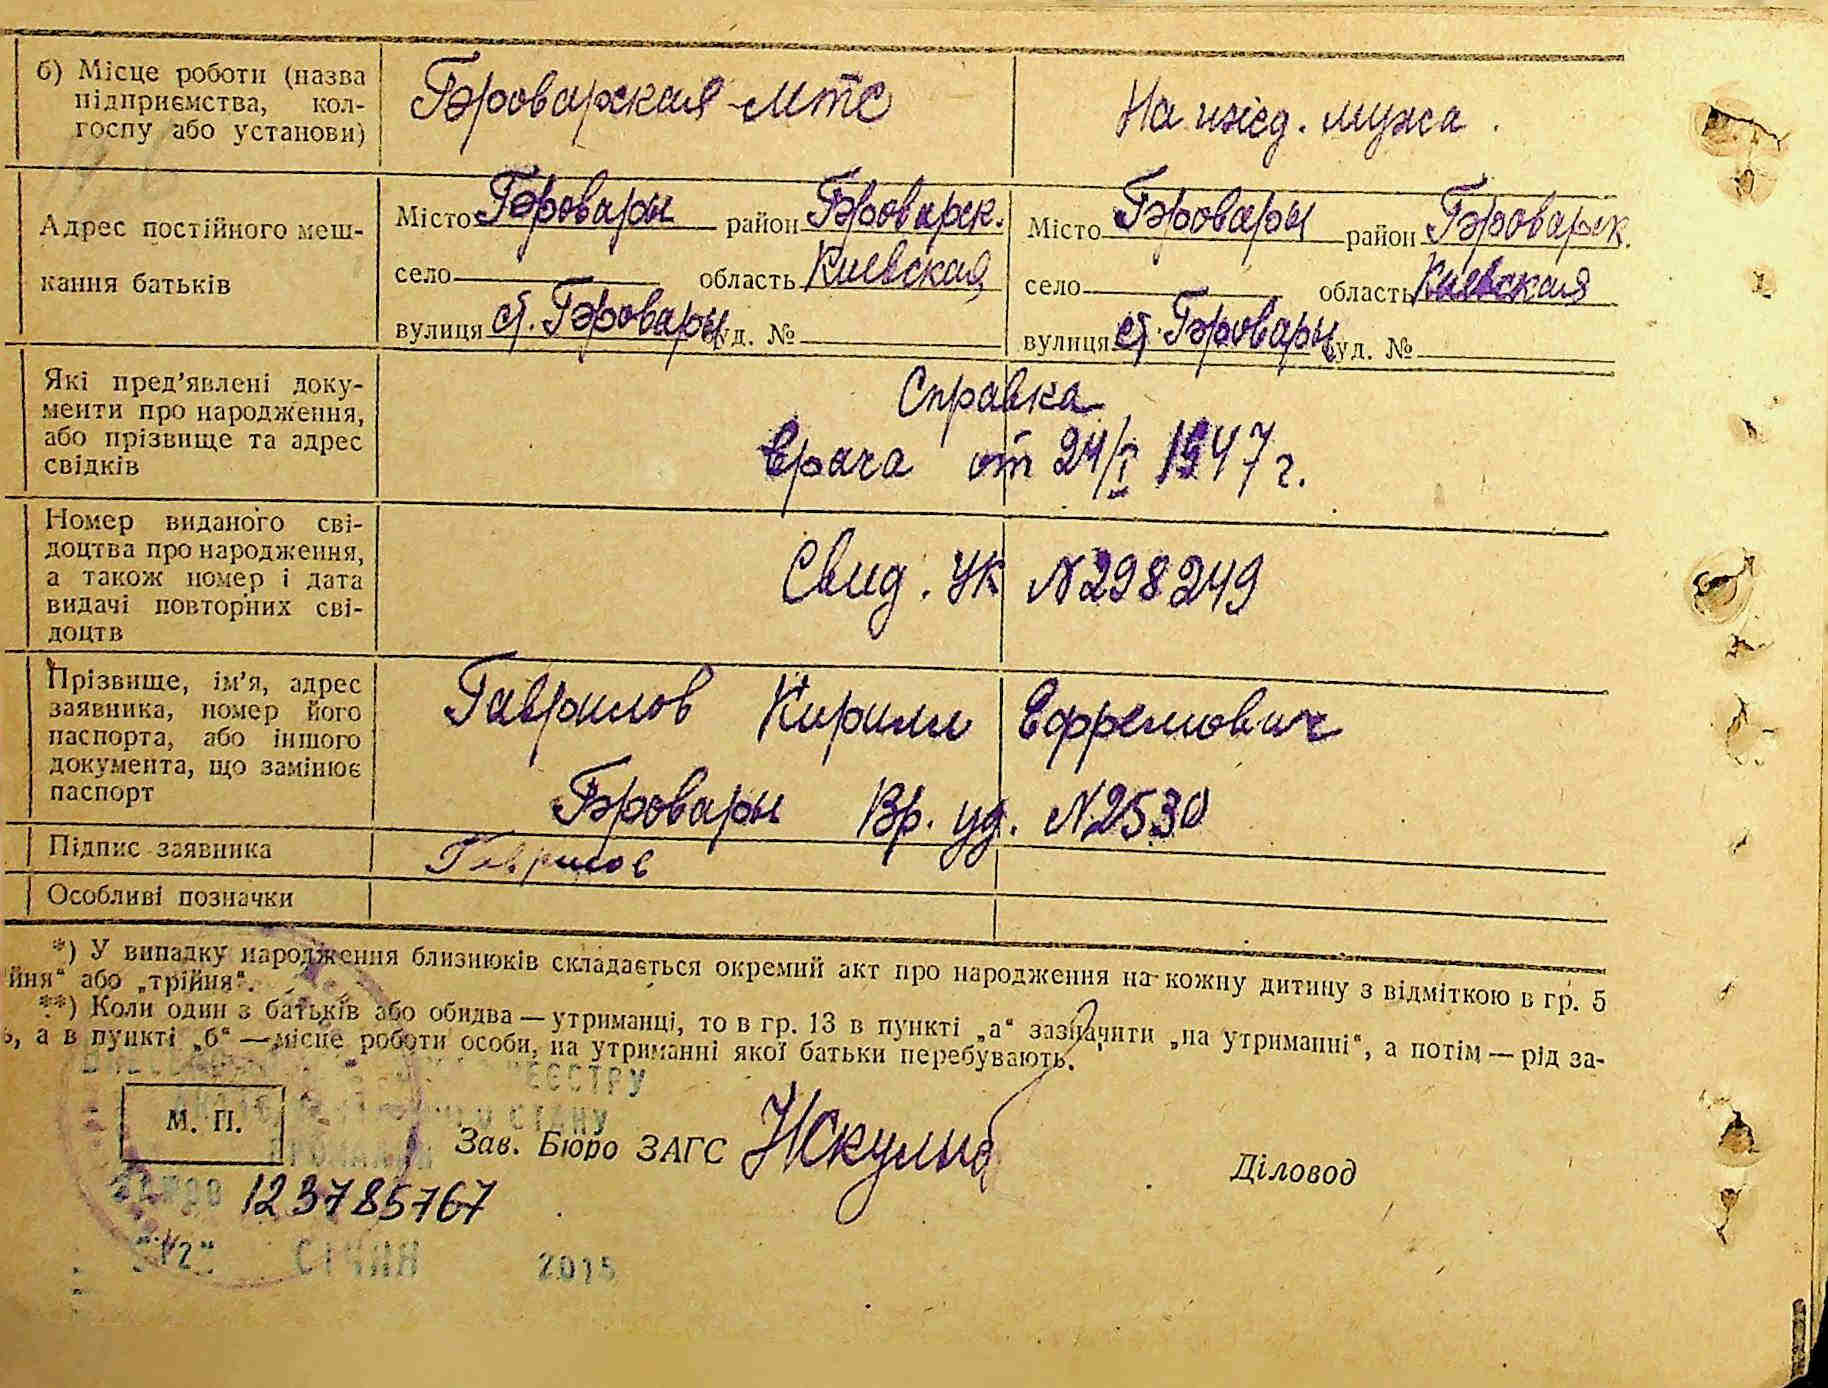 б) Місце роботи (назва
підприємства, кол-
госпу або установи)
Броварская МТС
На ижд. мужа.
Адрес постійного меш-
кання батьків
Місто Бровары район Броварск.
село область Киевская
вулиця ст. Бровары буд. №
Місто Бровары район Броварск.
село область Киевская
вулиця ст. Бровары буд. №
Які пред’явлені доку-
менти про народження,
або прізвище та адрес
свідків
Справка
врача от 24/I 1947 г.
Номер виданого сві-
доцтва про народження,
а також номер і дата
видачі повторних сві-
доцтв
Свид. УК N298249
Прізвище, ім’я, адрес
заявника, номер його
паспорта, або іншого
документа, що замінює
паспорт
Гаврилов Кирилл Ефремович
Бровары Вр. уд. N2530
Підпис заявника
Гаврилов
Особливі позначки
*) У випадку народження близнюків складається окремий акт про народження на кожну дитину з відміткою в гр. 5
ійня“ або „трійня“.
**) Коли один з батьків або обидва — утриманці, то в гр. 13 в пункті „а“ зазначити „на утриманні“, а потім — рід за-
ь, а в пункті „б“ — місце роботи особи, на утриманні якої батьки перебувають.
РЕЄСТРУ
СТАНУ
М. П.
Зав. Бюро ЗАГС
Діловод
123785767
"12" СІЧНЯ 2015